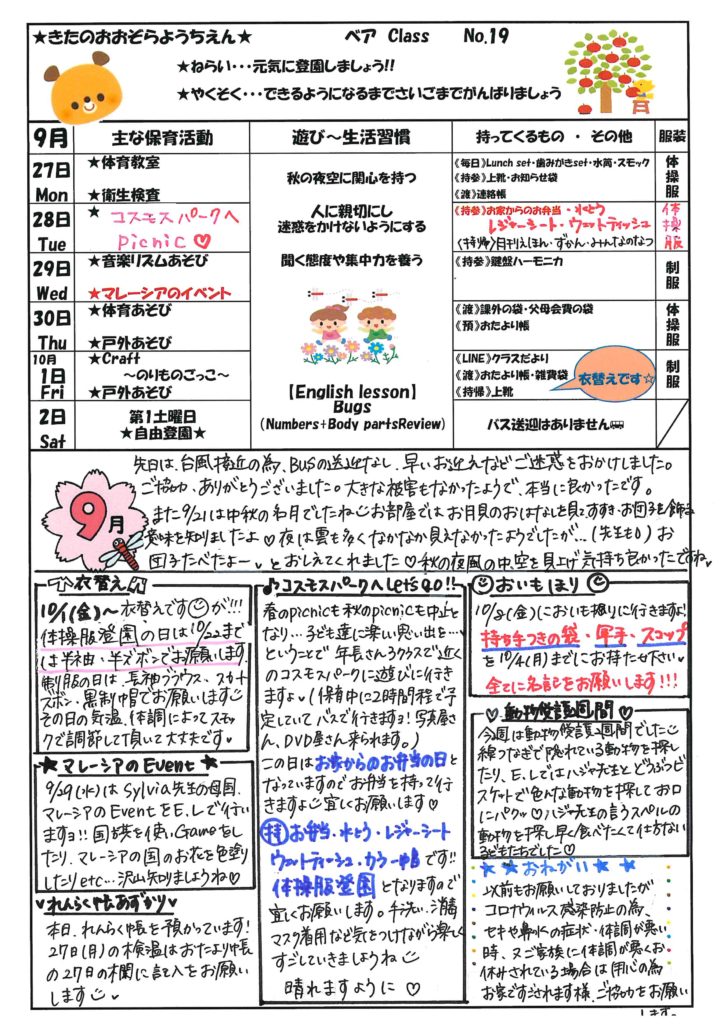 ★きたのおおぞらようちえん★　ベア Class　No.19
★ねらい・・・元気に登園しましょう!!
★やくそく・・・できるようになるまでさいごまでがんばりましょう
9月　主な保育活動　遊び～生活習慣　持ってくるもの ・ その他　服装
27日 Mon
★体育教室
★衛生検査
《毎日》Lunch set・歯みがきset・水筒・スモック
《持参》上靴・お知らせ袋
《渡》連絡帳
体操服
28日 Tue
★ コスモスパークへ
picnic ♡
《持参》お家からのお弁当・水とう
レジャーシート・ウェットティッシュ
〈持帰〉月刊えほん・ずかん・みんなのなつ
体操服
29日 Wed
★音楽リズムあそび
★マレーシアのイベント
《持参》鍵盤ハーモニカ
制服
30日 Thu
★体育あそび
★戸外あそび
《渡》課外の袋・父母会費の袋
《預》おたより帳
体操服
10月 1日 Fri
★Craft
～のりものごっこ～
★戸外あそび
《LINE》クラスだより
《渡》おたより帳・雑費袋
《持帰》上靴
衣替えです☆
制服
2日 Sat
第1土曜日
★自由登園★
バス送迎はありません
秋の夜空に関心を持つ
人に親切にし
迷惑をかけないようにする
聞く態度や集中力を養う
【English lesson】
Bugs
(Numbers+Body partsReview)
9月
先日は、台風接近の為、BUSの送迎なし、早いお迎えなどご迷惑をおかけしました。
ご協力、ありがとうございました。大きな被害もなかったようで、本当に良かったです。
また9/21は中秋の名月でしたね☺お部屋では、お月見のおはなしを見て、すすき・お団子を飾る
意味を知りましたよ♡夜は雲も多くなかなか見えなかったようでしたが…(先生も)お
団子たべたよー♡とおしえてくれました♡秋の夜風の中、空を見上げ気持ち良かったですね♥
衣替え
10/1(金)～衣替えです☺が!!!
体操服登園の日は10/22まで
は半袖・半ズボンでお願います。
制服の日は、長袖ブラウス、スカート
ズボン・黒制帽でお願いします☺
その日の気温、体調によってスモッ
クで調節して頂いて大丈夫です♥
★マレーシアのEvent★
9/29(水)はSylvia先生の母国、
マレーシアのEventをE.Lで行い
ますョ!! 国旗を使い、Gameをし
たり、マレーシアの国のお花を色塗り
したりetc…沢山知りましょうね♡
れんらく帳あずかり♡
本日、れんらく帳を預かっています!
27日(月)の検温はおたより帳
の27日の欄に記入をお願い
します☺♥
♪コスモスパークへLet's GO!!
春のpicnicも秋のpicnicも中止と
なり…子ども達に楽しい思い出を…♥
ということで 年長さん3クラスで近く
のコスモスパークに遊びに行き
ますよ♥(保育中に2時間程で予
定していて バスで行きますョ! 写真屋さ
ん、DVD屋さん来られます。)
この日はお家からのお弁当の日と
なっていますのでお弁当を持って行
きますよ☺宜しくお願いします♡
㊕お弁当・水とう・レジャーシート
ウェットティッシュ・カラー帽です!!
体操服登園となりますので
宜しくお願いします。手洗い、消毒
マスク着用など気をつけながら楽しく
すごしていきましょうね☺
晴れますように ♡
☺おいもほり☺
10/8(金)においも掘りに行きますよ!
持ち手つきの袋・軍手・スコップ
を10/4(月)までにお持たせ下さい
全てに名記をお願いします!!!
♡動物愛護週間♡
今週は動物愛護週間でした☺
線つなぎで隠れている動物を探し
たり、E.LではハジャA先生とどうぶつビ
スケットで色んな動物を探してお口
にパクッ♡ハジャ先生の言うスペルの
動物を探し早く食べたくて仕方ない
子どもたちでした♡
★★おねがい★★
以前もお願いしておりましたが
コロナウィルス感染防止の為、
セキや鼻水の症状・体調が悪い
時、又ご家族に体調が悪くお
休みされている場合は用心の為
お家ですごされます様、ご協力をお願い
します。